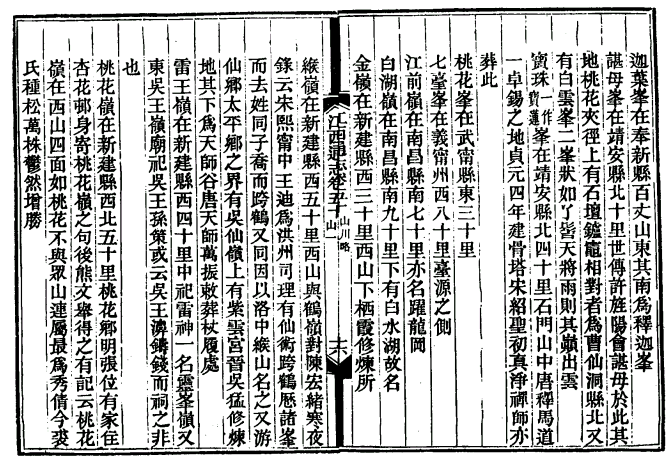 迦葉峯在奉新縣百丈山東其南爲釋迦峯
諶母峯在靖安縣北十里世傳許旌陽會諶母於此其
地桃花夾徑上有石壇鑪竈相對者爲曹仙洞縣北又
有白雲峯二峯狀如了皆天將雨則其巔出雲
寶珠一作寶蓮峯在靖安縣北四十里石門山中唐釋馬道
一卓錫之地貞元四年建骨塔宋紹聖初真淨禪師亦
葬此
桃花峯在武甯縣東三十里
七臺峯在義甯州西八十里臺源之側
江前嶺在南昌縣南七十里亦名躍龍岡
白湖嶺在南昌縣南九十里下有白水湖故名
金嶺在新建縣西三十里西山下棲霞修煉所
江西通志卷五十 山川略 山一 十六
緱嶺在新建縣西五十里西山與鶴嶺對陳宏緒寒夜
錄云宋熙甯中王迪爲洪州司理有仙術跨鶴歷諸峯
而去姓同子喬而跨鶴又同因以洛中緱山名之又游
仙鄉太平鄉之界有吳仙嶺上有紫雲宮晉吳猛修煉
地其下爲天師谷唐天師萬振敕葬杖履處
雷王嶺在新建縣西四十里中祀雷神一名靈峯嶺又
東吳王嶺廟祀吳王孫策或云吳王濞鑄錢而祠之非
也
桃花嶺在新建縣西北五十里桃花鄉明張位有家住
杏花邨身寄桃花嶺之句後熊文舉得之有記云桃花
嶺在西山四面如桃花不與眾山連屬最爲秀倩今裘
氏種松萬株鬱然增勝